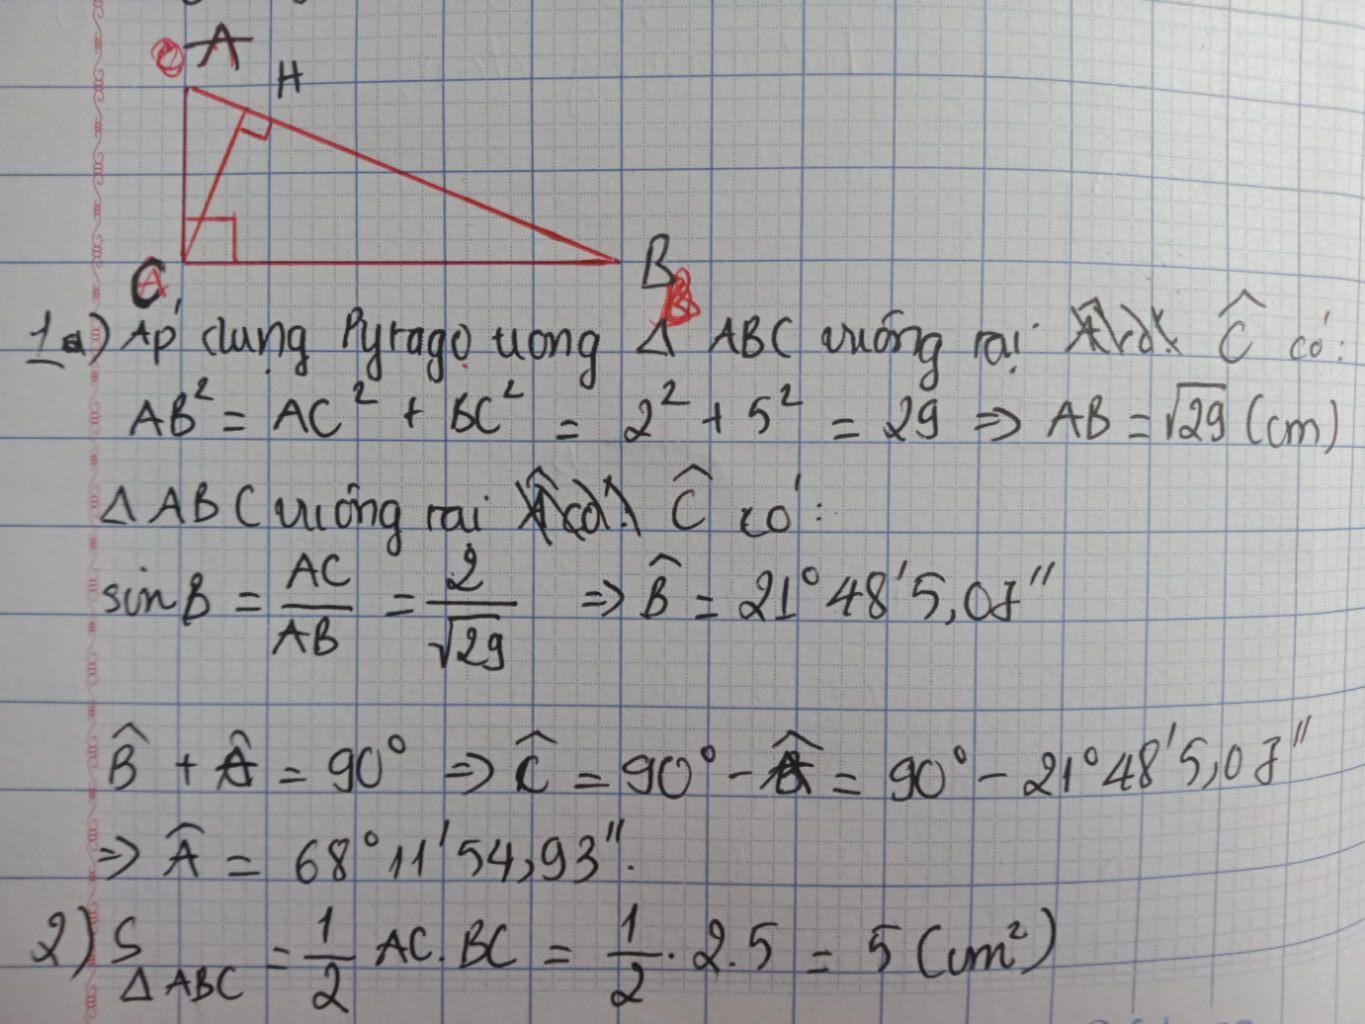 A
H
C
B
1a) Áp dụng Pytago trong Δ ABC vuông tại Ĉ có:
AB² = AC² + BC² = 2² + 5² = 29 => AB = √29 (cm)
Δ ABC vuông tại Ĉ có:
sin B = AC/AB = 2/√29 => B̂ = 21°48'5,07"
B̂ + Â = 90° => Ĉ = 90° - B̂ = 90° - 21°48'5,07"
=> Â = 68°11'54,93".
2) S ΔABC = 1/2 AC.BC = 1/2 . 2.5 = 5 (cm²)